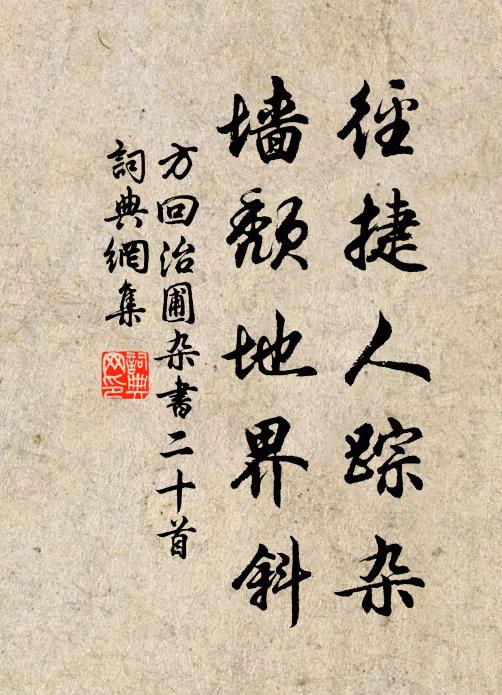 徑捷人踪杂
墙颓地界斜
方回治圃杂書二十首
詞典網集
詞典网印